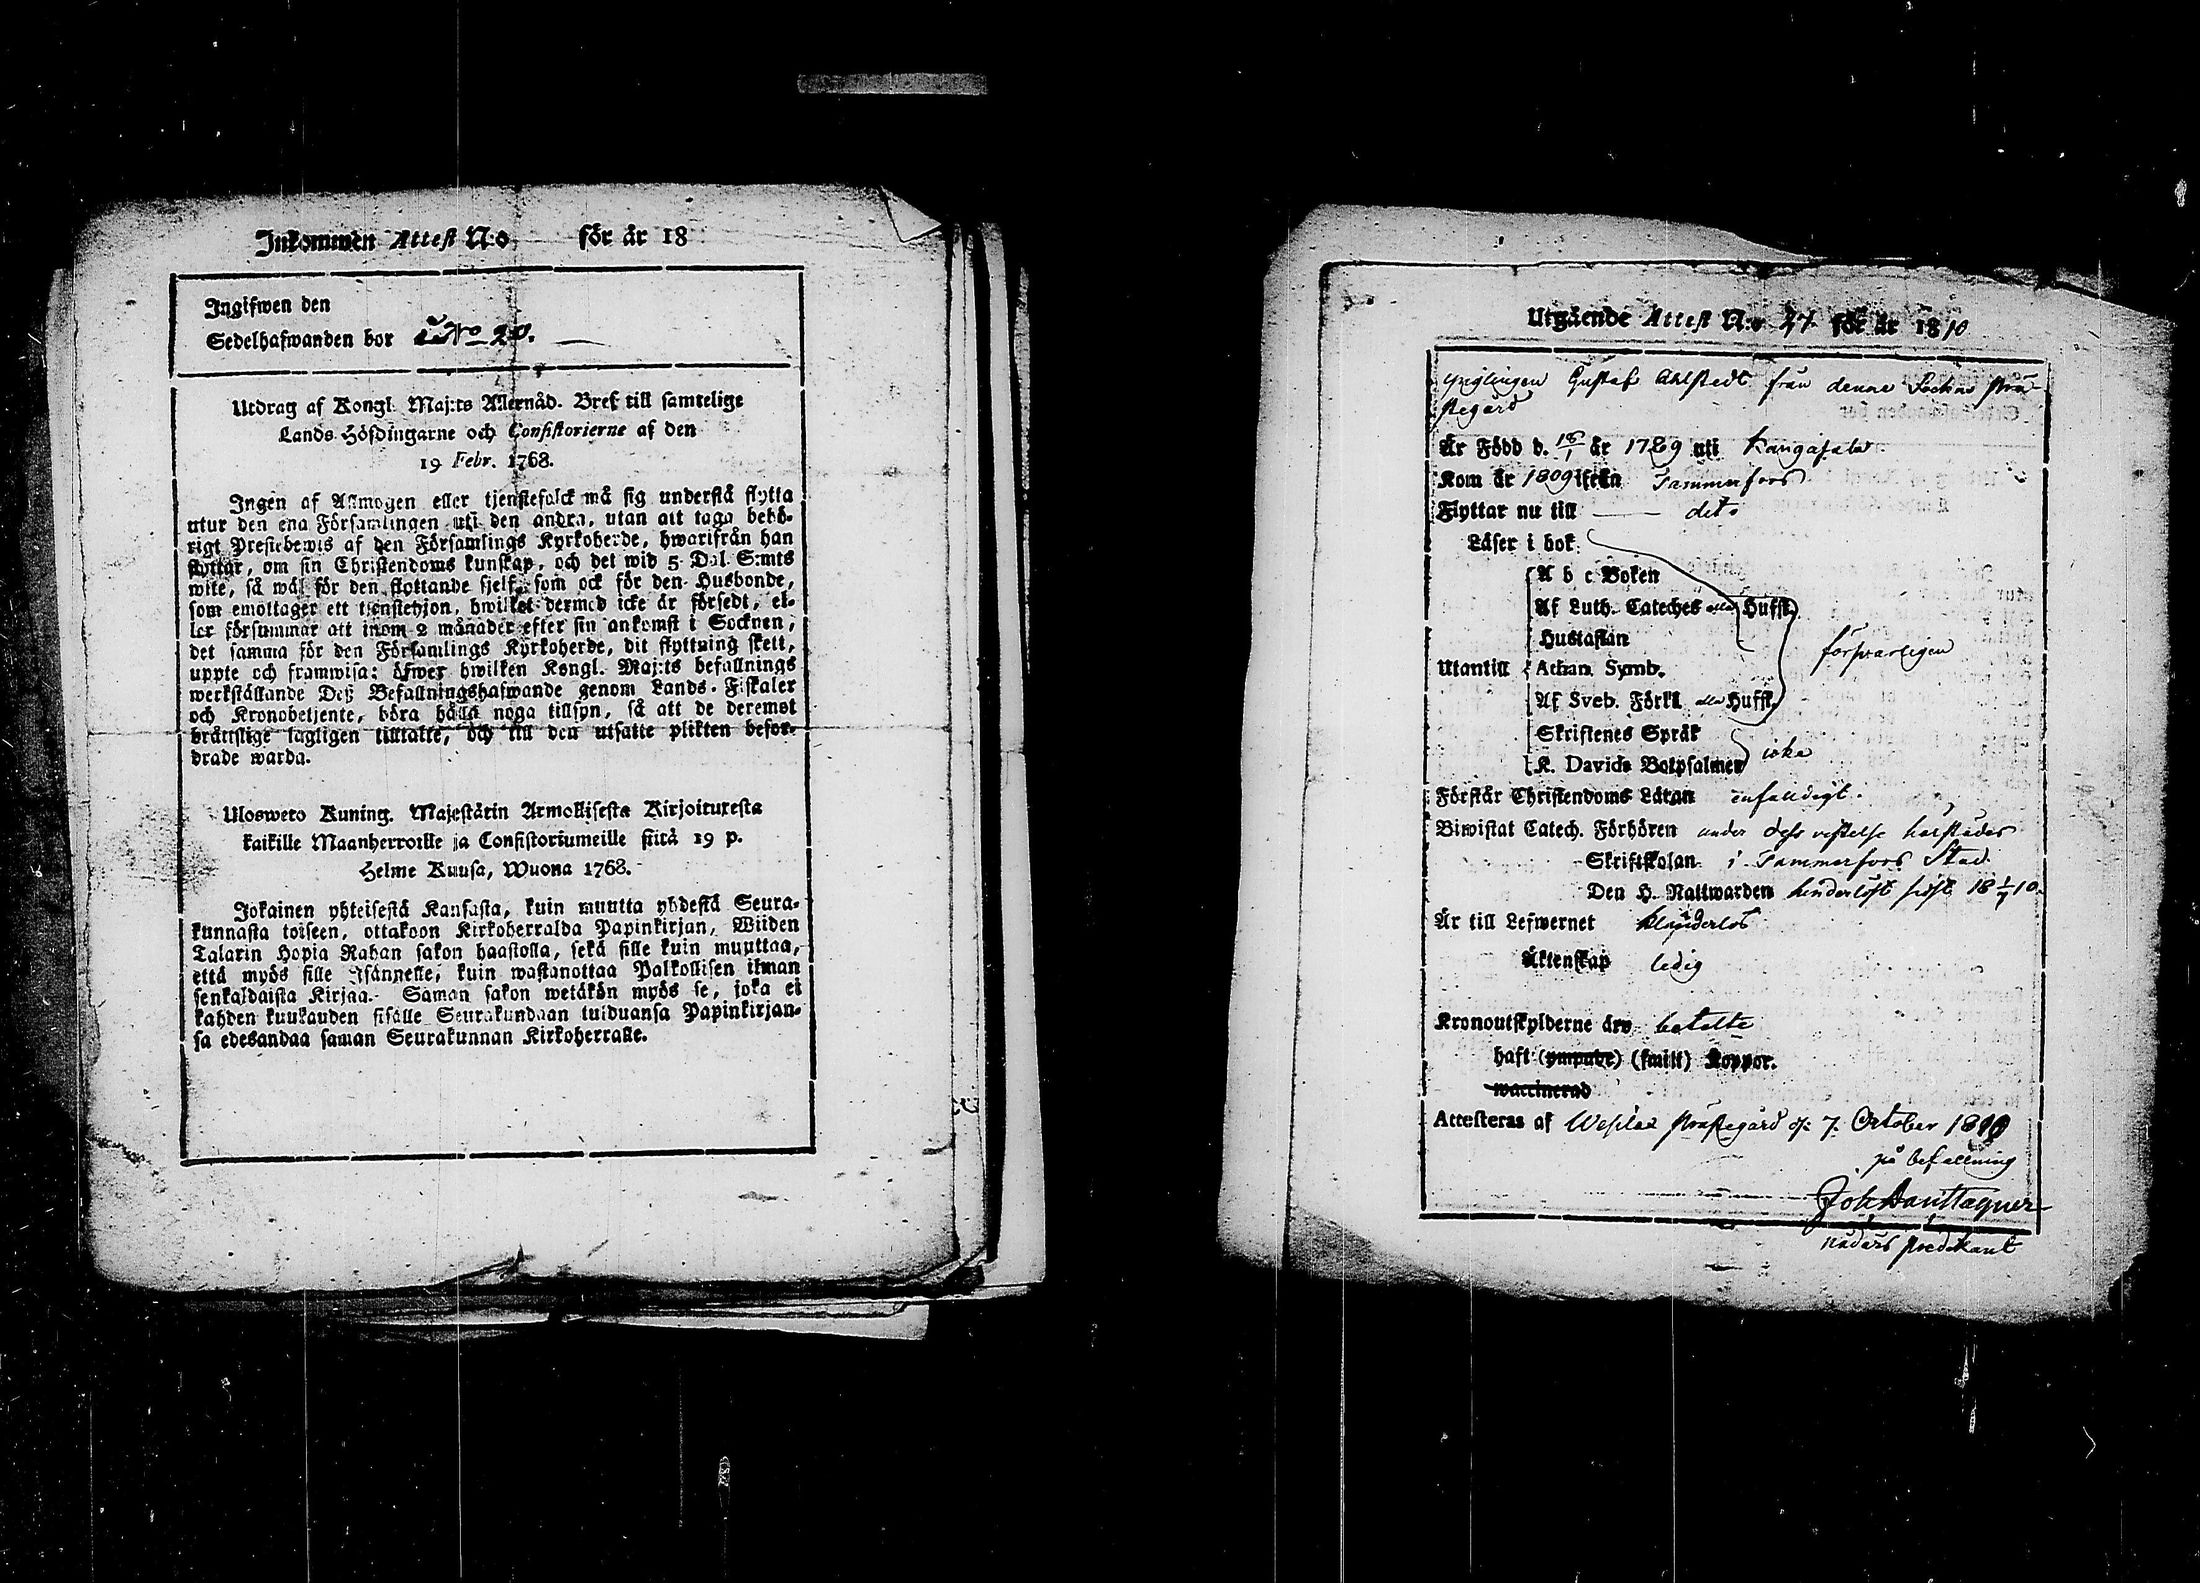 Inkommen Attest N:o för år 18
Ingifwen den
Sedelhafwanden bor i No 20.
Utdrag af Kongl. Maj:ts Allernåd. Bref till samtelige
Lands-Höfdingarne och Consistorierne af den
19 Febr. 1768.
Ingen af Allmogen eller tjenstefolck må sig understå flytta
utur den ena Församlingen uti den andra, utan att taga behö-
rigt Prestebewis af den Församlings Kyrkoherde, hwarifrån han
flyttar, om sin Christendoms kunskap, och det wid 5 Dal. S:mts
wite, så wäl för den flyttande sjelf, som ock för den Husbonde,
som emottager ett tjenstehjon, hwilket dermed icke är försedt, el-
ler försummar att inom 2 månader efter sin ankomst i Socknen,
det samma för den Församlings Kyrkoherde, dit flyttning skett,
uppte och framwisa: öfwer hwilken Kongl. Maj:ts befallnings
werkställande Deß Befallningshafwande genom Lands-Fiskaler
och Kronobetjente, böra hålla noga tillsyn, så att de deremot
bråttslige lagligen tilltalte, och till den utsatte plikten befor-
drade warda.
Ulosweto Kuning. Majestätin Armollisesta Kirjoituxesta
kaikille Maanherroille ja Consistoriumeille siitä 19 p.
Helme Kuusa, Wuona 1768.
Jokainen yhteisestä Kansasta, kuin muutta yhdestä Seura-
kunnasta toiseen, ottakoon Kirkoherralda Papinkirjan, Wiiden
Talarin Hopia Rahan sakon haastolla, sekä sille kuin muuttaa,
että myös sille Isännelle, kuin wastanottaa Palkollisen ilman
senkaldaista Kirjaa. Saman sakon wetäkön myös se, joka ei
kahden kuukauden sisälle Seurakundaan tulduansa Papinkirjan-
sa edesandaa saman Seurakunnan Kirkoherralle.
Utgående Attest N:o 27. för år 1810
Ynglingen Gustaf Ahlstedt från denne Sockns Prä-
stegård
Är Född d. 18/1 år 1789 uti Kangasala.
Kom år 1809 ifrån Tammerfors
Flyttar nu till —— dito
Läser i bok
A b c Boken
Af Luth. Cateches Hufst.
Hustaflan
Utantill Athan. Symb. försvarligen
Af Sveb. Förkl Hufst.
Skriftenes Språk
K. Davids Botpsalmer icke
Förstår Christendoms Läran enfaldigt.
Biwistat Catech. Förhören under dess vistelse härstädes
Skriftskolan i Tammerfors Stad
Den H. Nattwarden hinderlöst sist 18 1/7 10.
Är till Lefwernet klanderlös
Äktenskap ledig
Kronoutskylderne äro betalte
haft (ympade) (smitt) Koppor.
waccinerad
Attesteras af Wesilax Prästegård d. 7. October 1810
på befallning
Joh
nådårs predikant